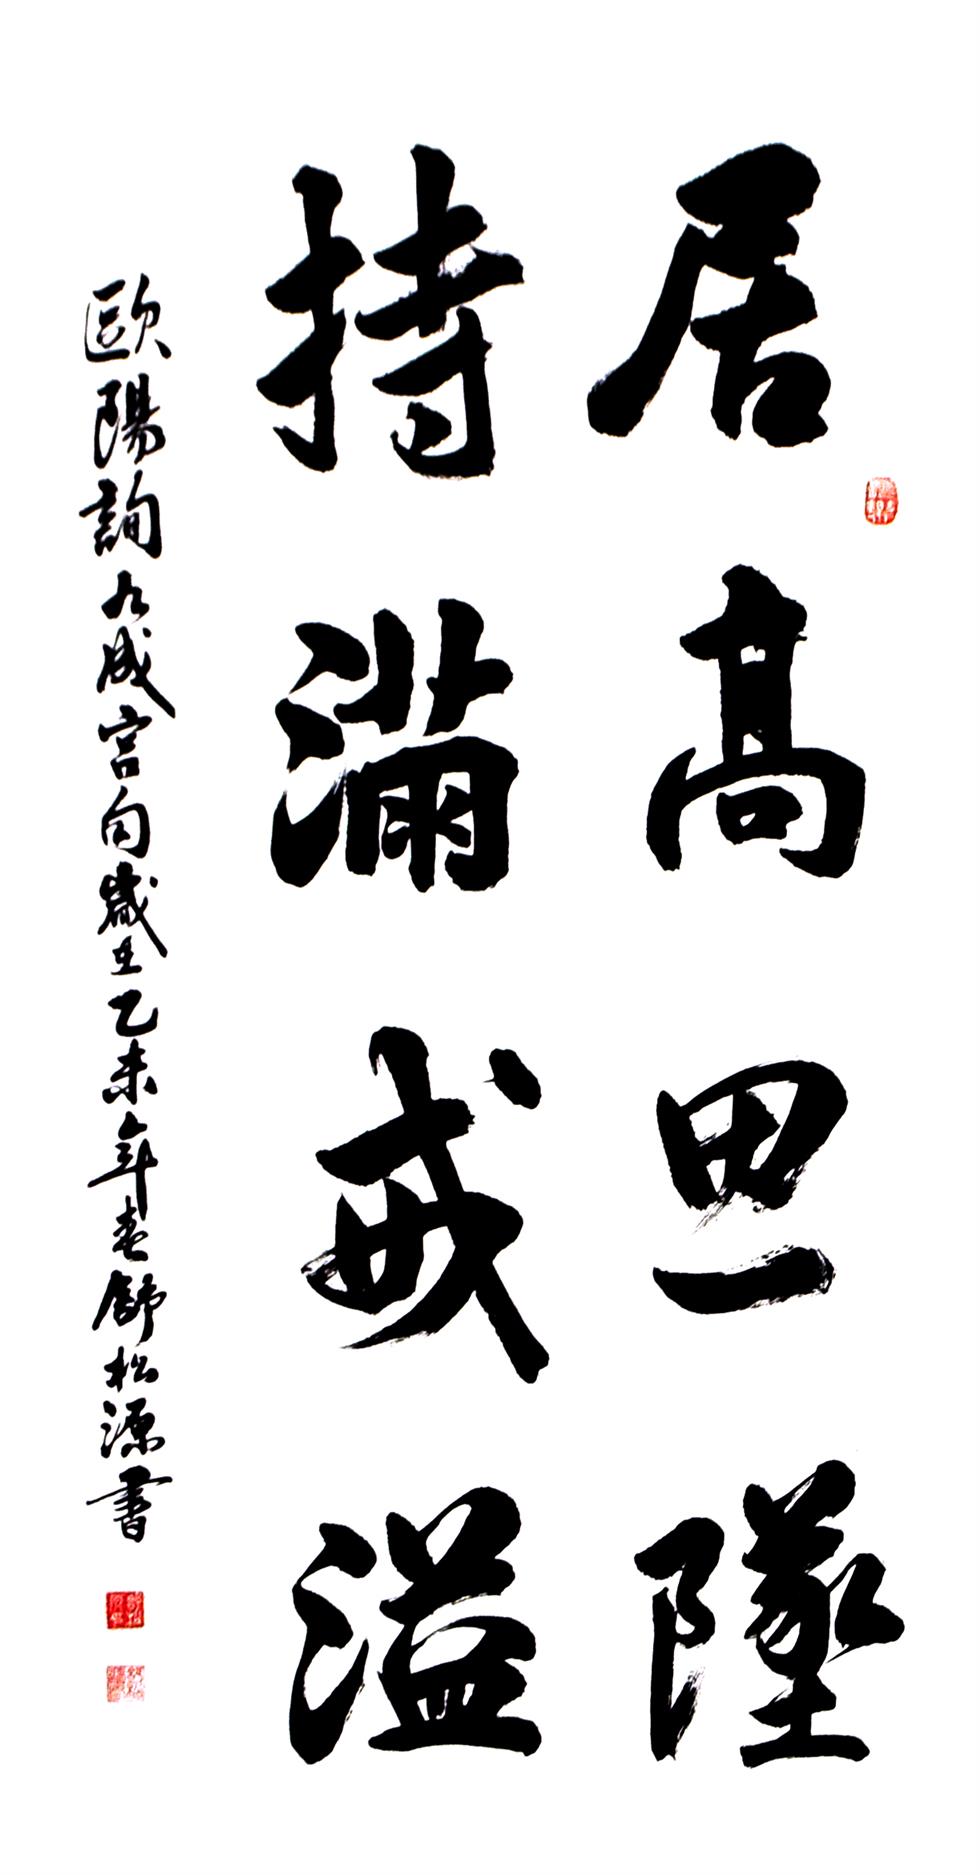 居高思墜
持滿戒溢
歐陽詢九成宮句歲在乙未年春舒松源書